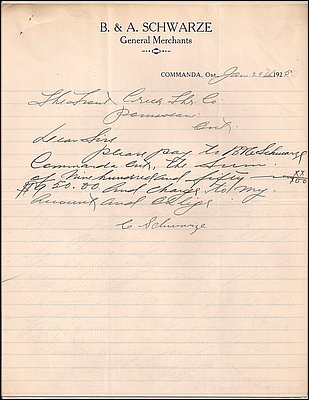 B. & A. SCHWARZE
General Merchants
COMMANDA, Ont. Jan 29th 1925
The Trout Creek Lbr. Co.
Ont.
Dear Sirs
please pay to B. & A. Schwarze
Commanda Ont. the Sum
of Nine hundred and fifty xx/100
$950.00 and charge to my
account and oblige
C Schwarze